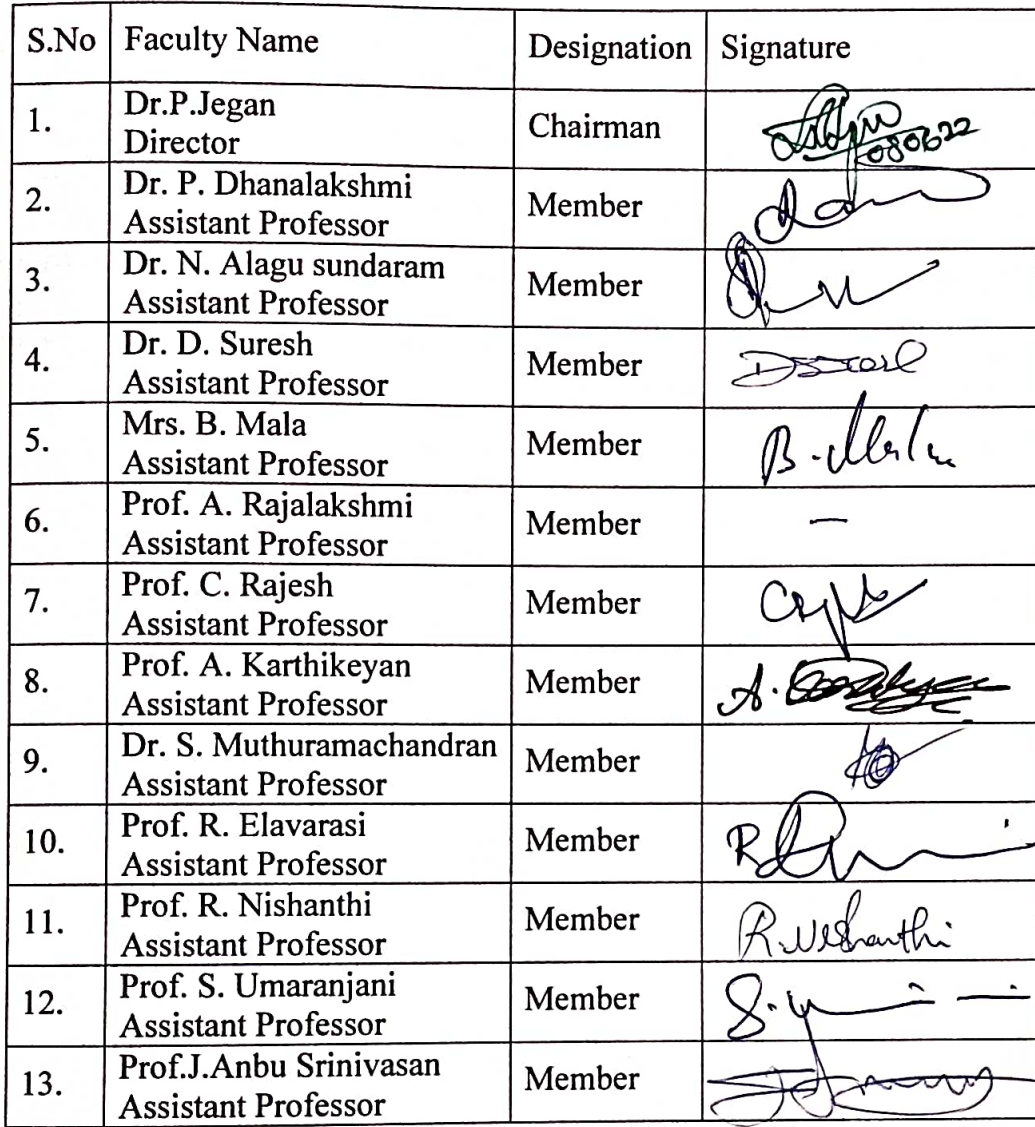 S.No Faculty Name Designation Signature
1. Dr.P.Jegan
Director Chairman
080622
2. Dr. P. Dhanalakshmi
Assistant Professor Member
3. Dr. N. Alagu sundaram
Assistant Professor Member
4. Dr. D. Suresh
Assistant Professor Member
5. Mrs. B. Mala
Assistant Professor Member B. Mala
6. Prof. A. Rajalakshmi
Assistant Professor Member –
7. Prof. C. Rajesh
Assistant Professor Member
8. Prof. A. Karthikeyan
Assistant Professor Member A.
9. Dr. S. Muthuramachandran
Assistant Professor Member
10. Prof. R. Elavarasi
Assistant Professor Member R
11. Prof. R. Nishanthi
Assistant Professor Member R. Nishanthi
12. Prof. S. Umaranjani
Assistant Professor Member S.
13. Prof.J.Anbu Srinivasan
Assistant Professor Member